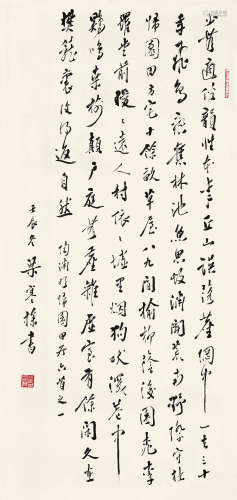 少無適俗韻性本愛丘山誤落塵網中一去三十
年羈鳥戀舊林池魚思故淵開荒南野際守拙
歸園田方宅十餘畝草屋八九間榆柳蔭後園桃李
羅堂前曖曖遠人村依依墟里煙狗吠深巷中
鷄鳴桑樹顛戶庭無塵雜虛室有餘閒久在
樊籠裏復得返自然
陶淵明歸園田居六首之一
壬辰冬 梁寒操書